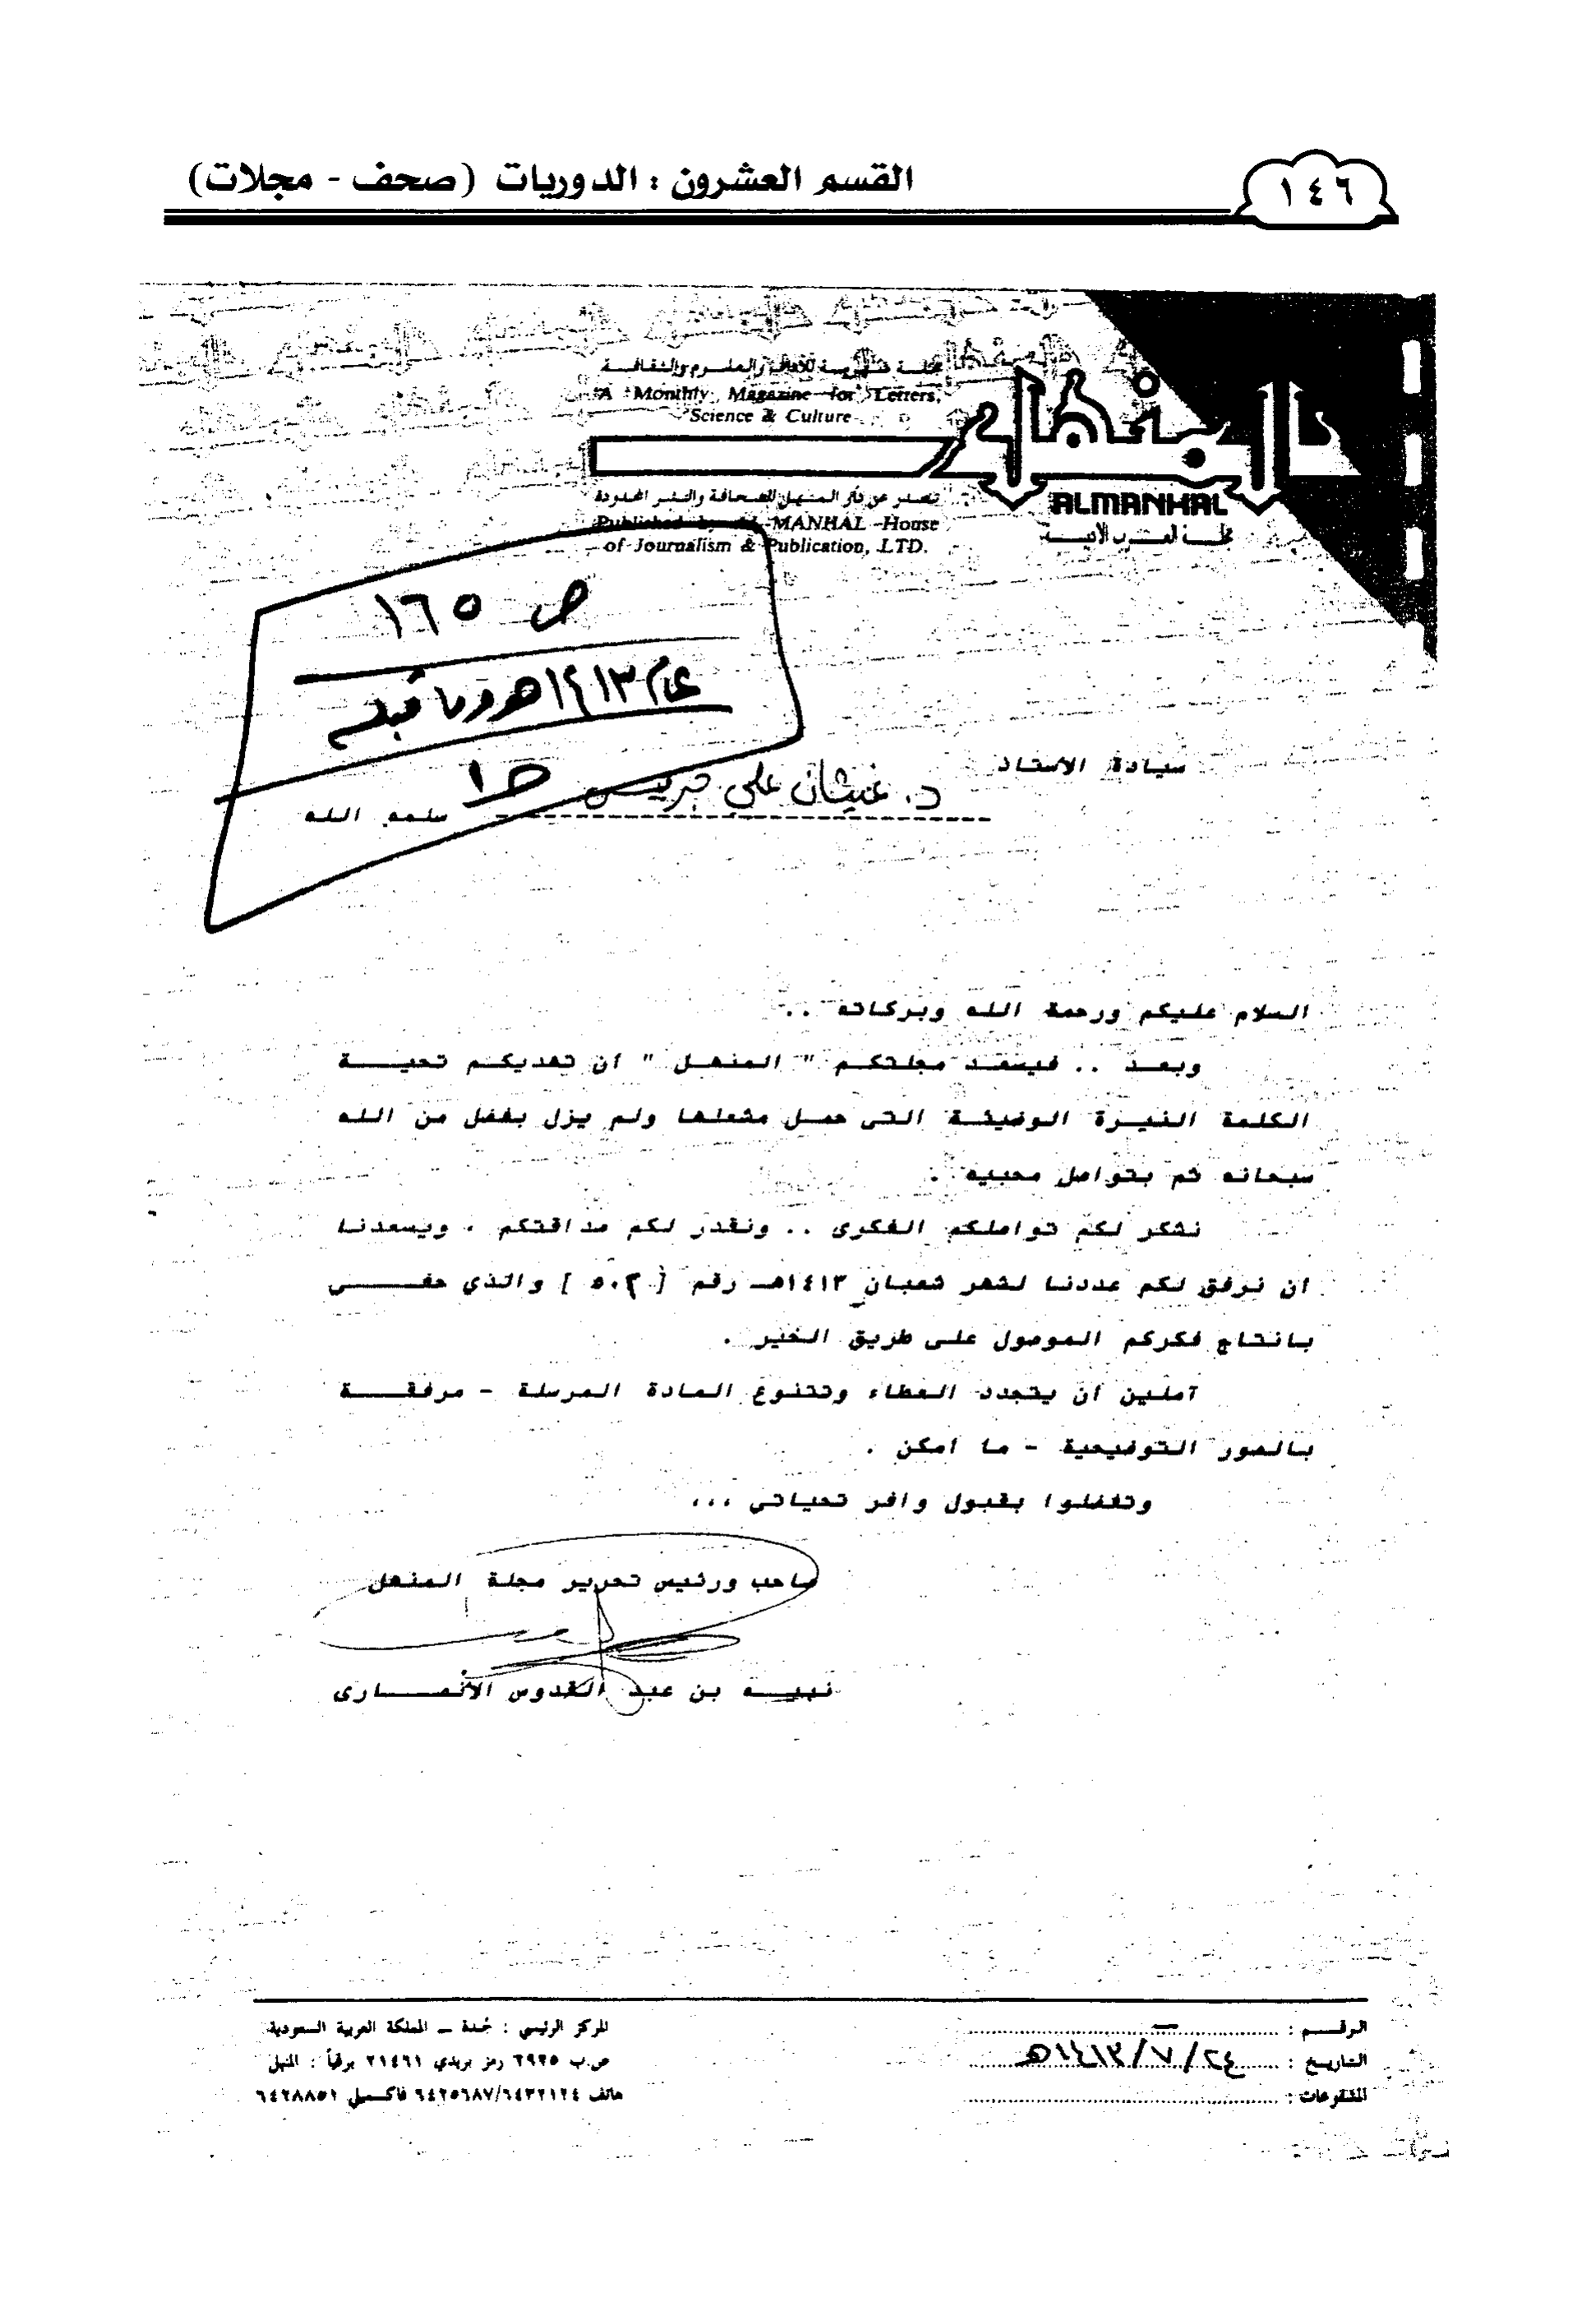 ١٤٦
القسم العشرون : الدوريات (صحف - مجلات)
مجلة شهرية للآداب والعلوم والثقافة
A Monthly Magazine for Letters,
Science & Culture
المنهل
ALMANHAL
مجلة العرب الأدبية
تصدر عن دار المنهل للصحافة والنشر المحدودة
Published by AL-MANHAL House
of Journalism & Publication, LTD.
ص ١٦٥
عام ١٤١٣هـ وما قبله
سيادة الاستاذ
د. غيثان علي جريس
سلمه الله
السلام عليكم ورحمة الله وبركاته ..
وبعد .. فيسعد مجلتكم " المنهل " ان تهديكم تحية
الكلمة النيرة الوضيئة التى حمل مشعلها ولم يزل بفضل من الله
سبحانه ثم بتواصل محبيه .
نشكر لكم تواصلكم الفكرى .. ونقدر لكم صداقتكم ، ويسعدنا
ان نرفق لكم عددنا لشهر شعبان ١٤١٣هـ رقم [ ٥٠٢ ] والذي حفى
بانتاج فكركم الموصول على طريق الخير .
آملين ان يتجدد العطاء وتتنوع المادة المرسلة - مرفقة
بالصور التوضيحية - ما امكن .
وتفضلوا بقبول وافر تحياتي ...
صاحب ورئيس تحرير مجلة المنهل
نبيه بن عبد القدوس الأنصارى
الرقم :
التاريخ : ٢٤/ ٧/ ١٤١٣هـ
المشفوعات :
المركز الرئيسي : جدة - المملكة العربية السعودية
ص.ب ٢٩٢٥ رمز بريدي ٢١٤٦١ برقياً : المنهل
هاتف ٦٤٣٢١٢٤/٦٤٢٥٦٨٧ فاكسميلي ٦٤٢٨٨٥١